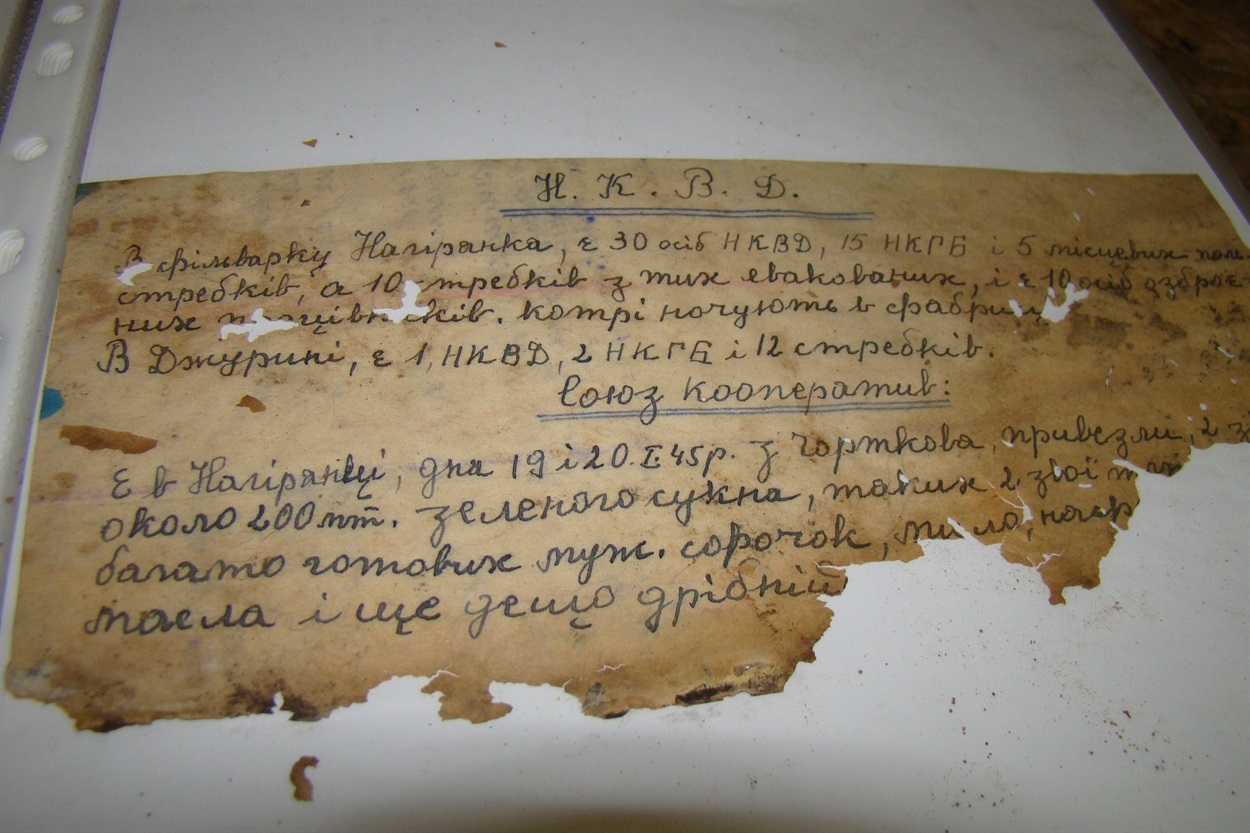 Н. К. В. Д.
В фільварку Нагіранка, є 30 осіб НКВД, 15 НКГБ і 5 місцевих
стребків, а 10 стребків з тих евакованих, і є 10 осіб озброє-
них котрі ночують в
В Джурині, є 1, НКВД, 2 НКГБ і 12 стребків.
Союз кооператив:
Є в Нагіранці, дна 19 і 20.I 45р. з Чорткова, привезли, 2
около 200 мт. зеленого сукна, таких 2
багато готових муж. сорочок, мило,
масла і ще дещо дрібній